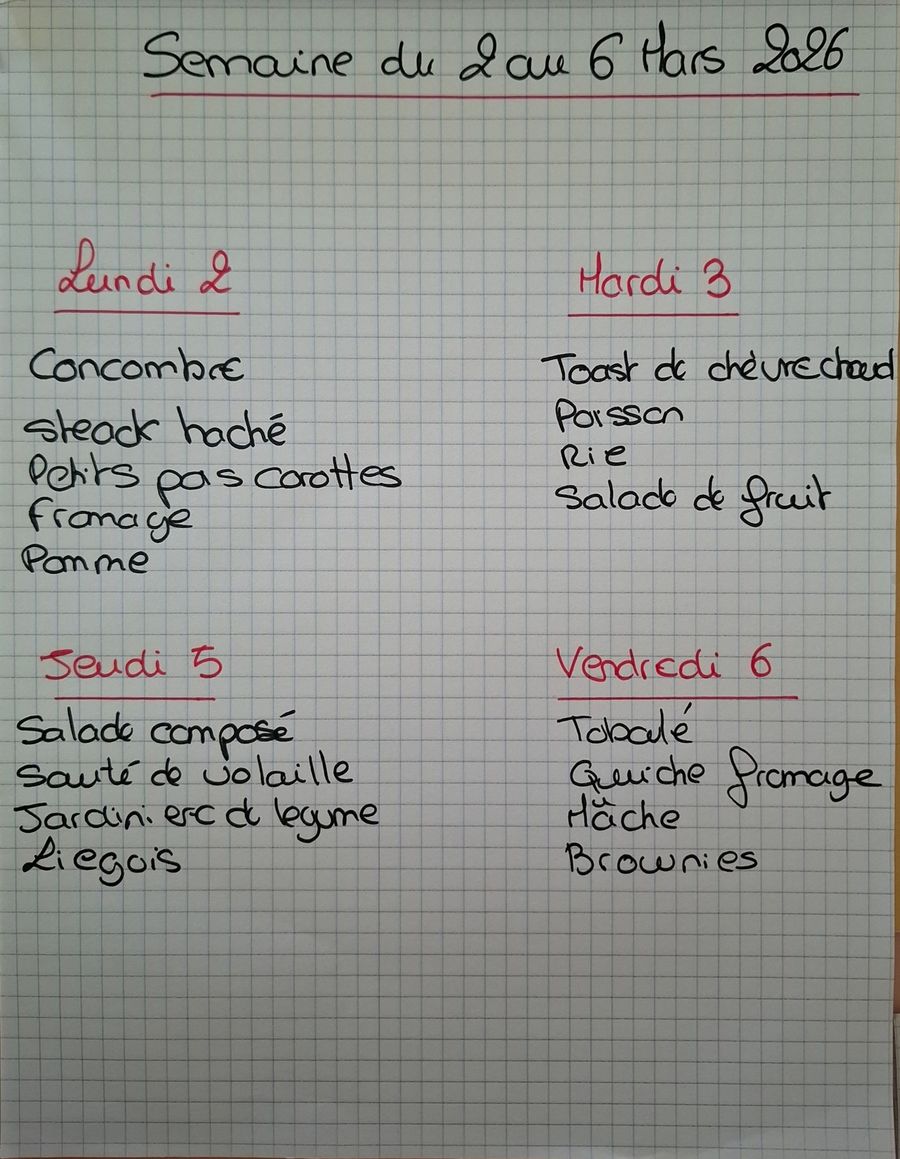 Semaine du 2 au 6 Mars 2026
Lundi 2
Concombre
steack haché
Petits pas carottes
fromage
Pomme
Mardi 3
Toast de chèvre chaud
Poisson
Rie
Salade de fruit
Jeudi 5
Salade composé
Sauté de volaille
Jardiniere de legume
Liegois
Vendredi 6
Tabalé
Quiche fromage
Mâche
Brownies